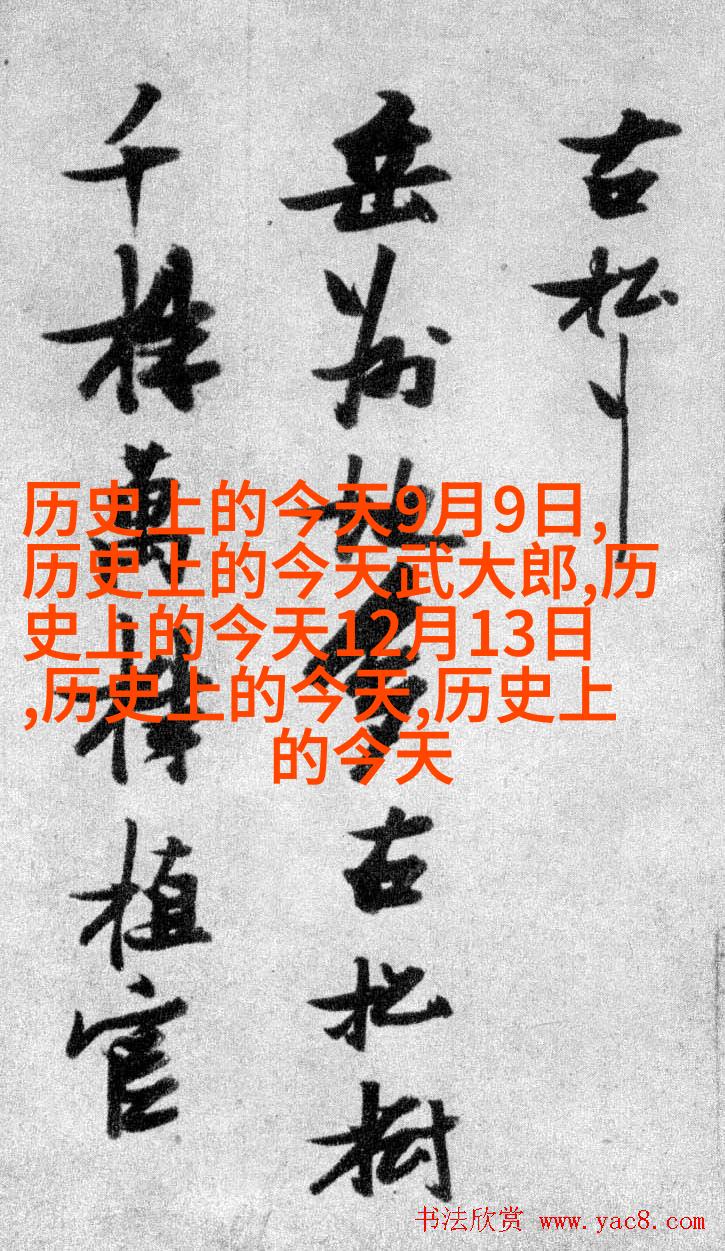 古松
岳州地多古松樹
千株萬株植官
历史上的今天9月9日,
历史上的今天武大郎,历
史上的今天12月13日
,历史上的今天,历史上
的今天
书法欣赏 www.yac8.com